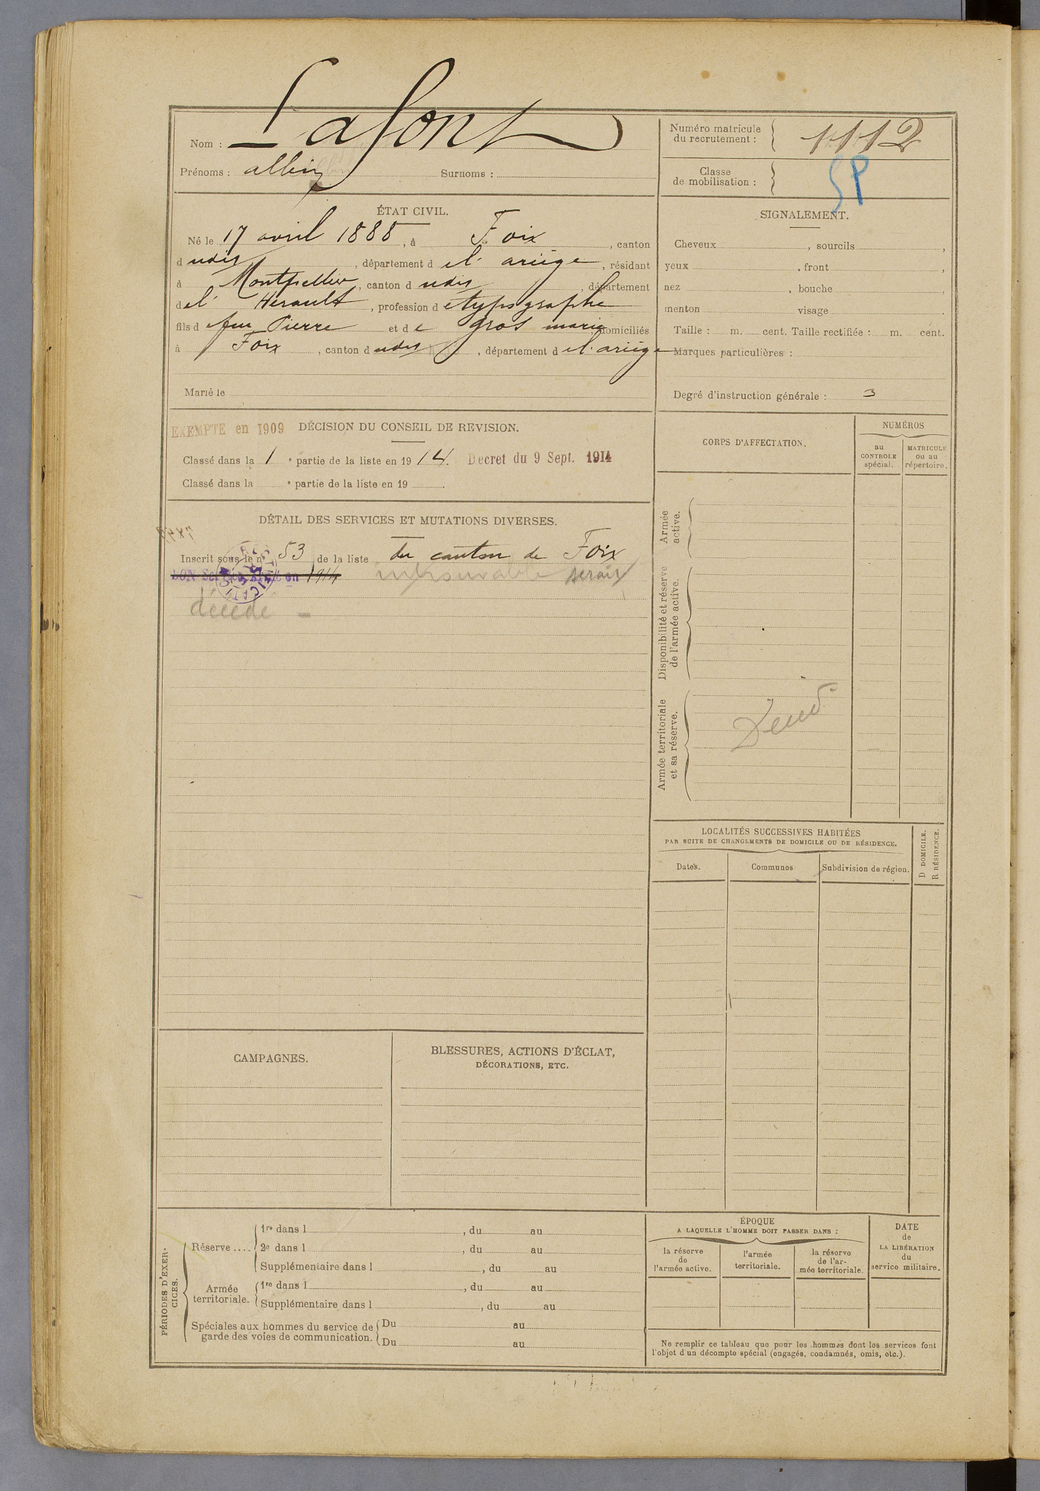 Nom : Lafont
Prénoms : albin Surnoms :
Numéro matricule du recrutement : 1112
Classe de mobilisation : SP
ÉTAT CIVIL.
Né le 17 avril 1888, à Foix, canton
dudis, département de l'ariège, résidant
à Montpellier, canton dudis, département
de l'Hérault, profession de typographe
fils de feu Pierre et de Gros marie domiciliés
à Foix, canton dudis, département de l'ariège
Marié le
SIGNALEMENT.
Cheveux , sourcils ,
yeux , front ,
nez , bouche ,
menton visage
Taille : m. cent. Taille rectifiée : m. cent.
Marques particulières :
Degré d'instruction générale : 3
EXEMPTE en 1909 DÉCISION DU CONSEIL DE REVISION.
Classé dans la 1 e partie de la liste en 1914. Decret du 9 Sept. 1914
Classé dans la e partie de la liste en 19 .
DÉTAIL DES SERVICES ET MUTATIONS DIVERSES.
Inscrit sous le n° 53 de la liste du canton de Foix
BON Service en 1914 introuvable serait
décédé -
CORPS D'AFFECTATION.
NUMÉROS
au CONTROLE spécial.
MATRICULE ou au répertoire.
Armée active.
Disponibilité et réserve de l'armée active.
Armée territoriale et sa réserve.
LOCALITÉS SUCCESSIVES HABITÉES
PAR SUITE DE CHANGEMENTS DE DOMICILE OU DE RÉSIDENCE.
D DOMICILE.
R RÉSIDENCE.
Dates.
Communes
Subdivision de région.
CAMPAGNES.
BLESSURES, ACTIONS D'ÉCLAT,
DÉCORATIONS, ETC.
PÉRIODES D'EXERCICES.
Réserve ....
1re dans l , du au
2e dans l , du au
Supplémentaire dans l , du au
Armée territoriale.
1re dans l , du au
Supplémentaire dans l , du au
Spéciales aux hommes du service de garde des voies de communication.
Du au
Du au
ÉPOQUE
A LAQUELLE L'HOMME DOIT PASSER DANS :
la réserve de l'armée active.
l'armée territoriale.
la réserve de l'armée territoriale.
DATE de LA LIBÉRATION du service militaire.
Ne remplir ce tableau que pour les hommes dont les services font
l'objet d'un décompte spécial (engagés, condamnés, omis, etc.).